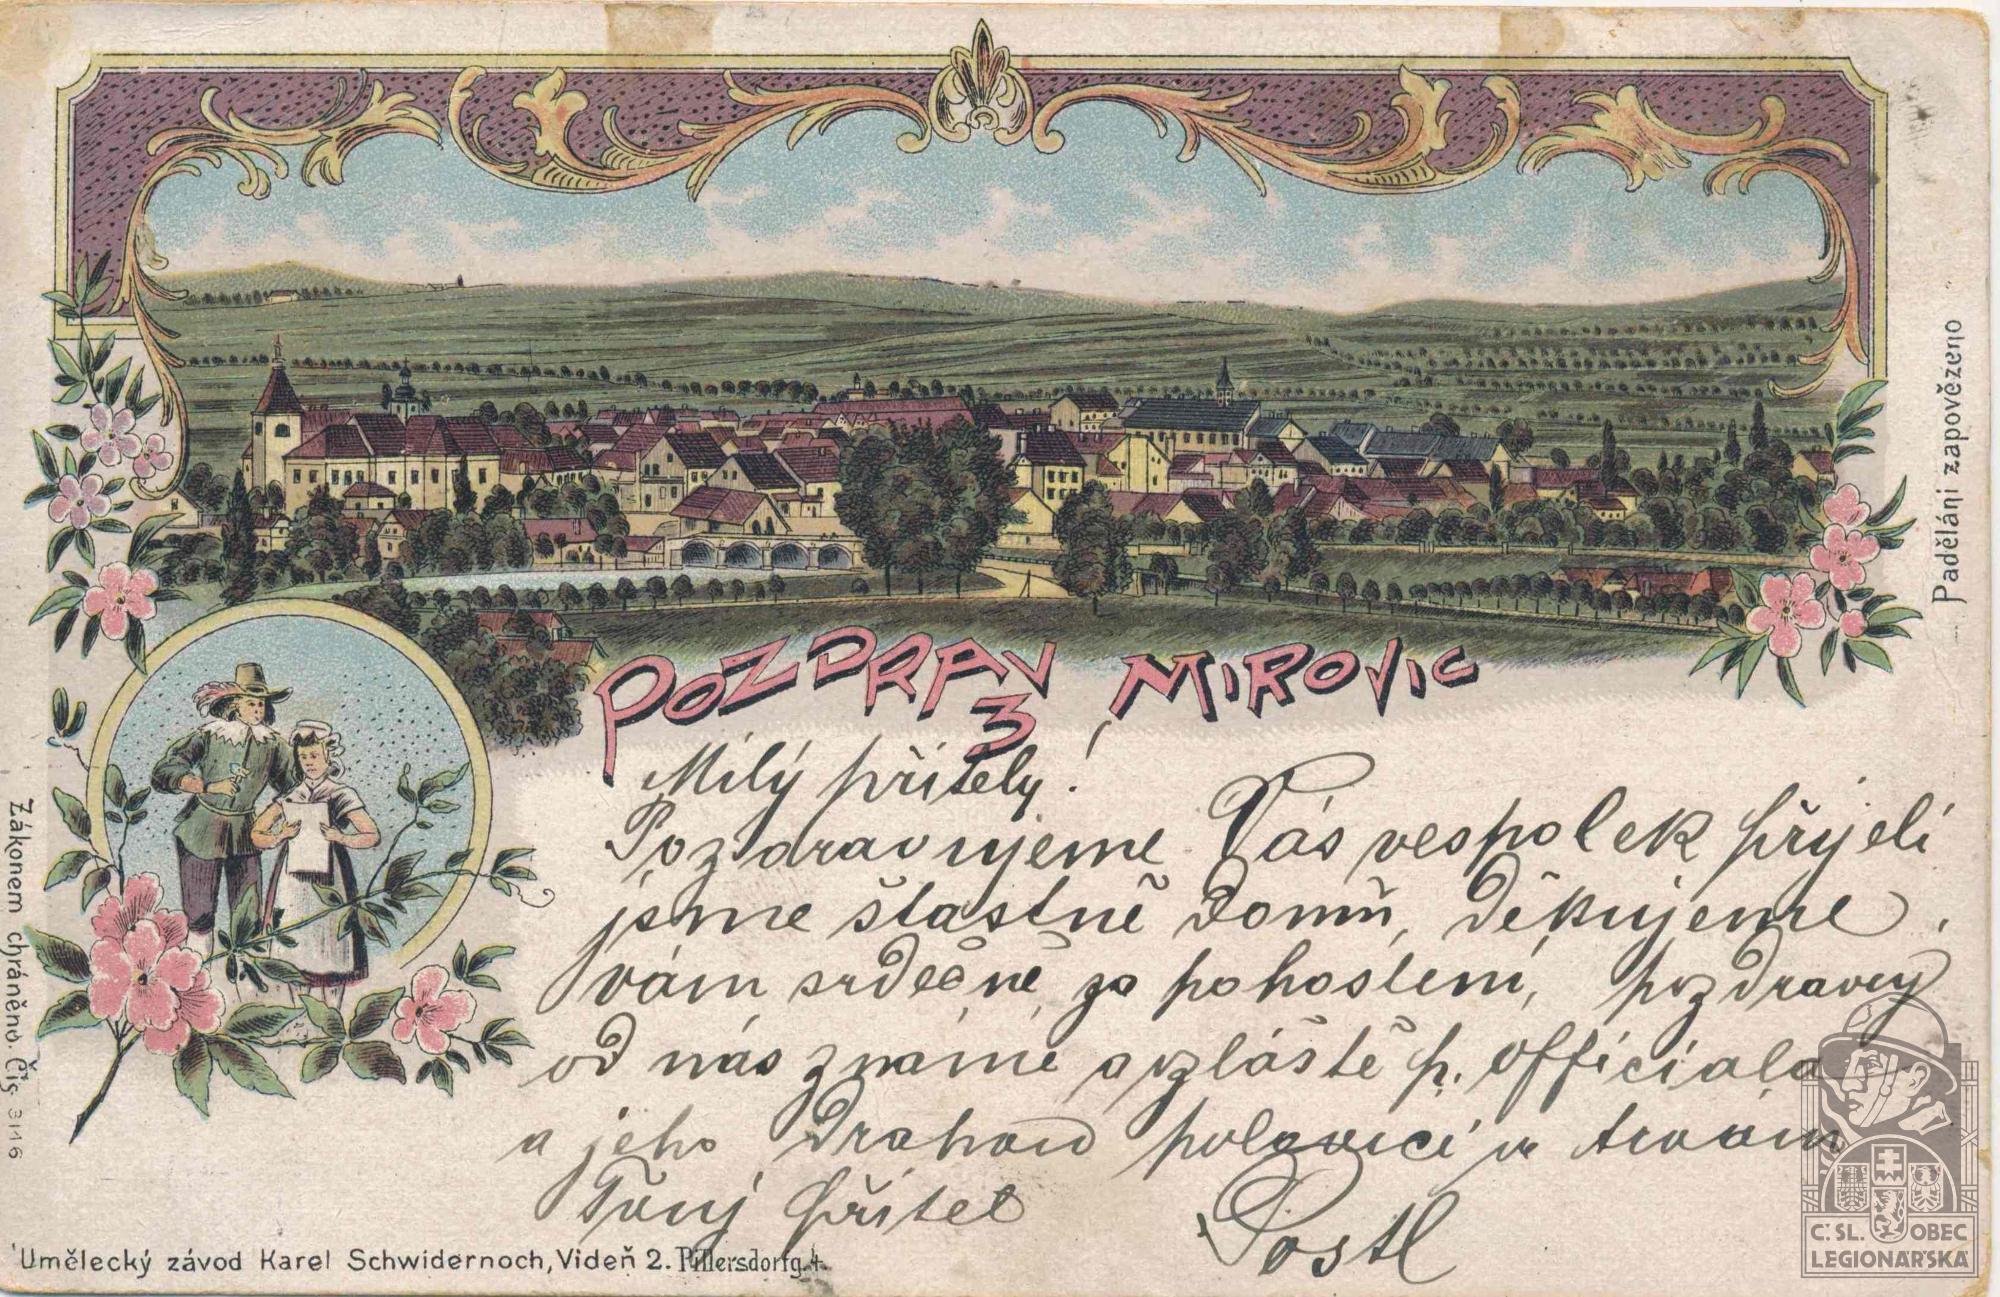 POZDRAV
Z MIROVIC
Milý přítely!
Pozdravujeme Vás vespolek přijeli
jsme šťastně domů, děkujeme
vám srdečně za pohoštění, pozdravuj
od nás známé a zláště p. officiala
a jeho drahou polovici
přítel Postl
Padělání zapovězeno
Zákonem chráněno. Čís. 3116
Umělecký závod Karel Schwidernoch, Videň 2. Pillersdorfg. 4.
Č.SL. OBEC
LEGIONÁŘSKÁ